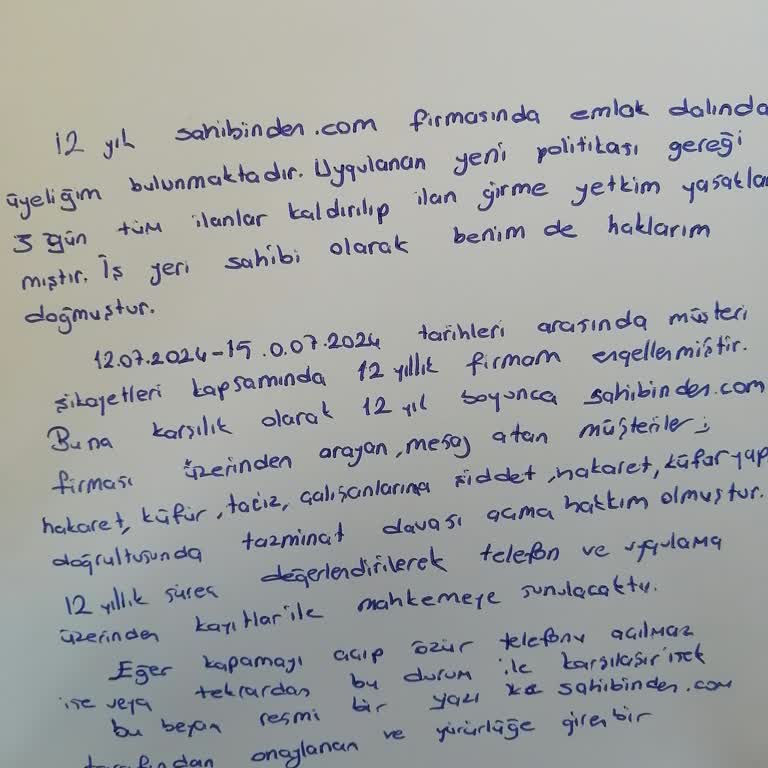 12 yılı sahibinden.com firmasında emlak dalında
üyeliğim bulunmaktadır. Uygulanan yeni politikası gereği
3 gün tüm ilanlar kaldırılıp ilan girme yetkim yasakla
mıştır. İş yeri sahibi olarak benim de haklarım
doğmuştur.
12.07.2024-15.0.07.2024 tarihleri arasında müşteri
şikayetleri kapsamında 12 yıllık firmam engellenmiştir.
Buna karşılık olarak 12 yıl boyunca sahibinden.com
firması üzerinden arayan, mesaj atan müşteriler;
hakaret, küfür, taciz, çalışanlarına şiddet, hakaret, küfür yap
doğrultusunda tazminat davası açma hakkım olmuştur.
12 yıllık süreç değerlendirilerek telefon ve uygulama
üzerinden kayıtlar ile mahkemeye sunulacaktır.
Eğer kapamayı açıp özür telefonu açılmaz
ise veya tekrardan bu durum ile karşılaşır isek
bu beyan resmi bir yazı sahibinden.com
tarafından onaylanan ve yürürlüğe giren bir